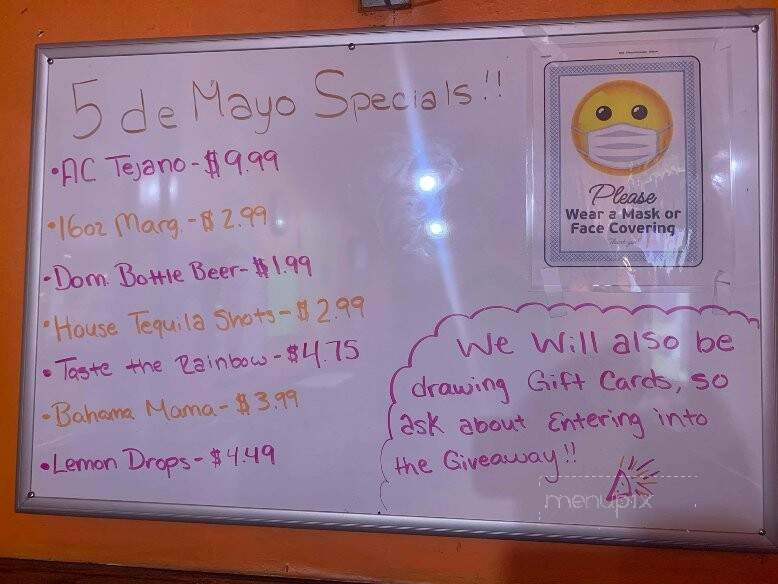 5 de Mayo Specials!!
• AC Tejano - $9.99
• 16oz Marg. - $2.99
• Dom. Bottle Beer - $1.99
• House Tequila Shots - $2.99
• Taste the Rainbow - $4.75
• Bahama Mama - $3.99
• Lemon Drops - $4.49
Please
Wear a Mask or
Face Covering
Thank you!
We Will also be
drawing Gift Cards, so
ask about Entering into
the Giveaway!!
menupix